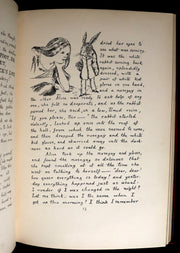 dried her eyes to
see what was coming. It
was the white
rabbit coming back
again, splendidly
dressed, with a
pair of white kid
gloves in one hand,
and a nosegay in
the other. Alice was ready to ask help of any
one, she felt so desperate, and as the rabbit
passed her, she said, in a low, timid voice,
"If you please, Sir—" the rabbit started
violently, looked up once into the roof of
the hall, from which the voice seemed to come,
and then dropped the nosegay and the white
kid gloves, and skurried away into the dark-
ness as hard as it could go.
Alice took up the nosegay and gloves,
and found the nosegay so delicious that
she kept smelling at it all the time she
went on talking to herself— "dear, dear!
how queer everything is today! and yester-
day everything happened just as usual:
I wonder if I was changed in the night?
Let me think: was I the same when I
got up this morning? I think I remember
13